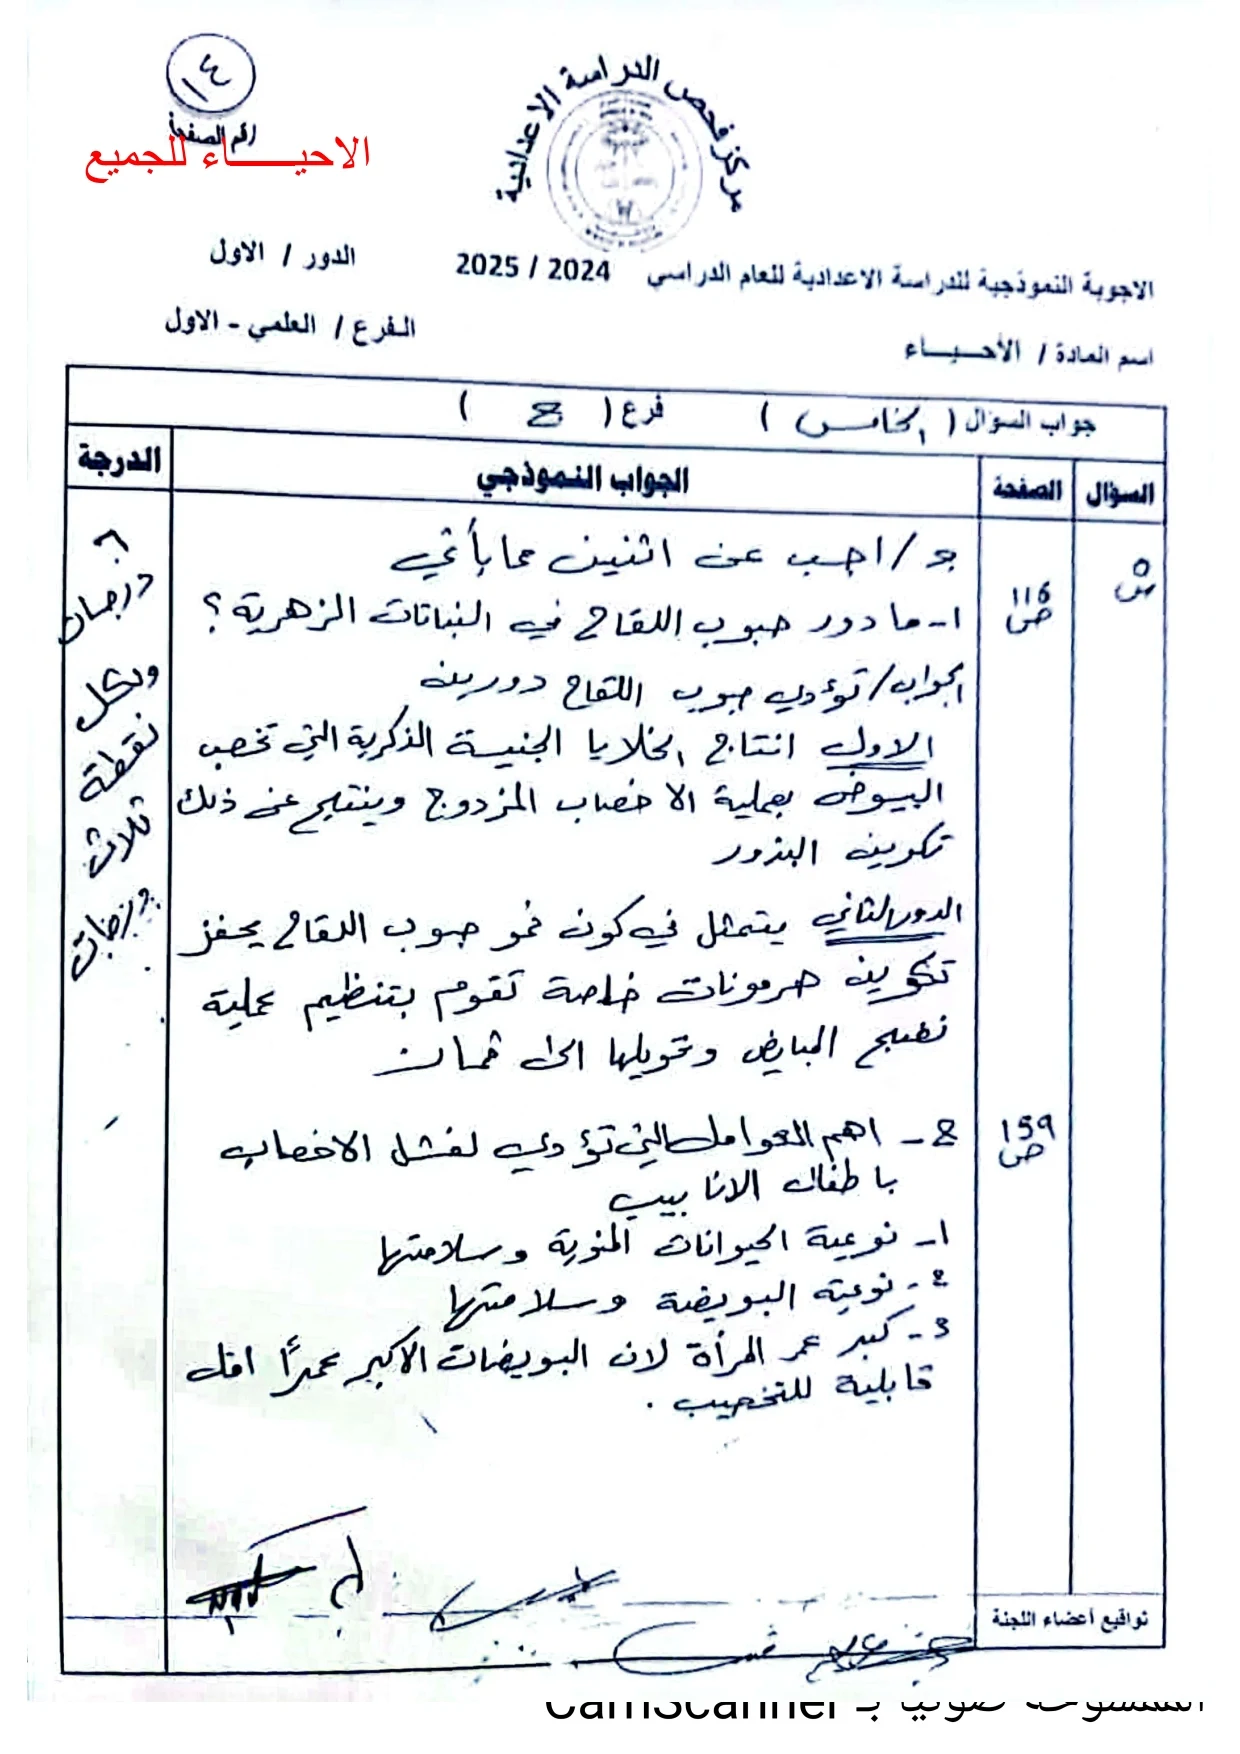 ١٤
رقم الصفحة
الاحيـــــاء للجميع
مركز فحص الدراسة الاعدادية
الاجوبة النموذجية للدراسة الاعدادية للعام الدراسي 2024 / 2025
الدور / الاول
اسم المادة / الأحيـــاء
الفرع / العلمي - الاول
جواب السؤال ( الخامس ) فرع ( )
السؤال الصفحة الجواب النموذجي الدرجة
س٥
ص 116
٦ درجات ولكل نقطة ثلاث درجات
ج / اجب عن اثنين مما يأتي
١- ما دور حبوب اللقاح في النباتات الزهرية ؟
الجواب / تؤدي حبوب اللقاح دورين
الاول انتاج الخلايا الجنسية الذكرية التي تخصب
البيوض بعملية الاخصاب المزدوج وينتج عن ذلك
تكوين البذور
الدور الثاني يتمثل في كون نمو حبوب اللقاح يحفز
تكوين هرمونات خاصة تقوم بتنظيم عملية
نضج المبايض وتحويلها الى ثمار
ص 159
2- اهم العوامل التي تؤدي لفشل الاخصاب
باطفال الانابيب
١- نوعية الحيوانات المنوية وسلامتها
2- نوعية البويضة وسلامتها
3- كبر عمر المرأة لان البويضات الاكبر عمراً اقل
قابلية للتخصيب .
تواقيع أعضاء اللجنة
الممسوحة ضوئيا بـ CamScanner